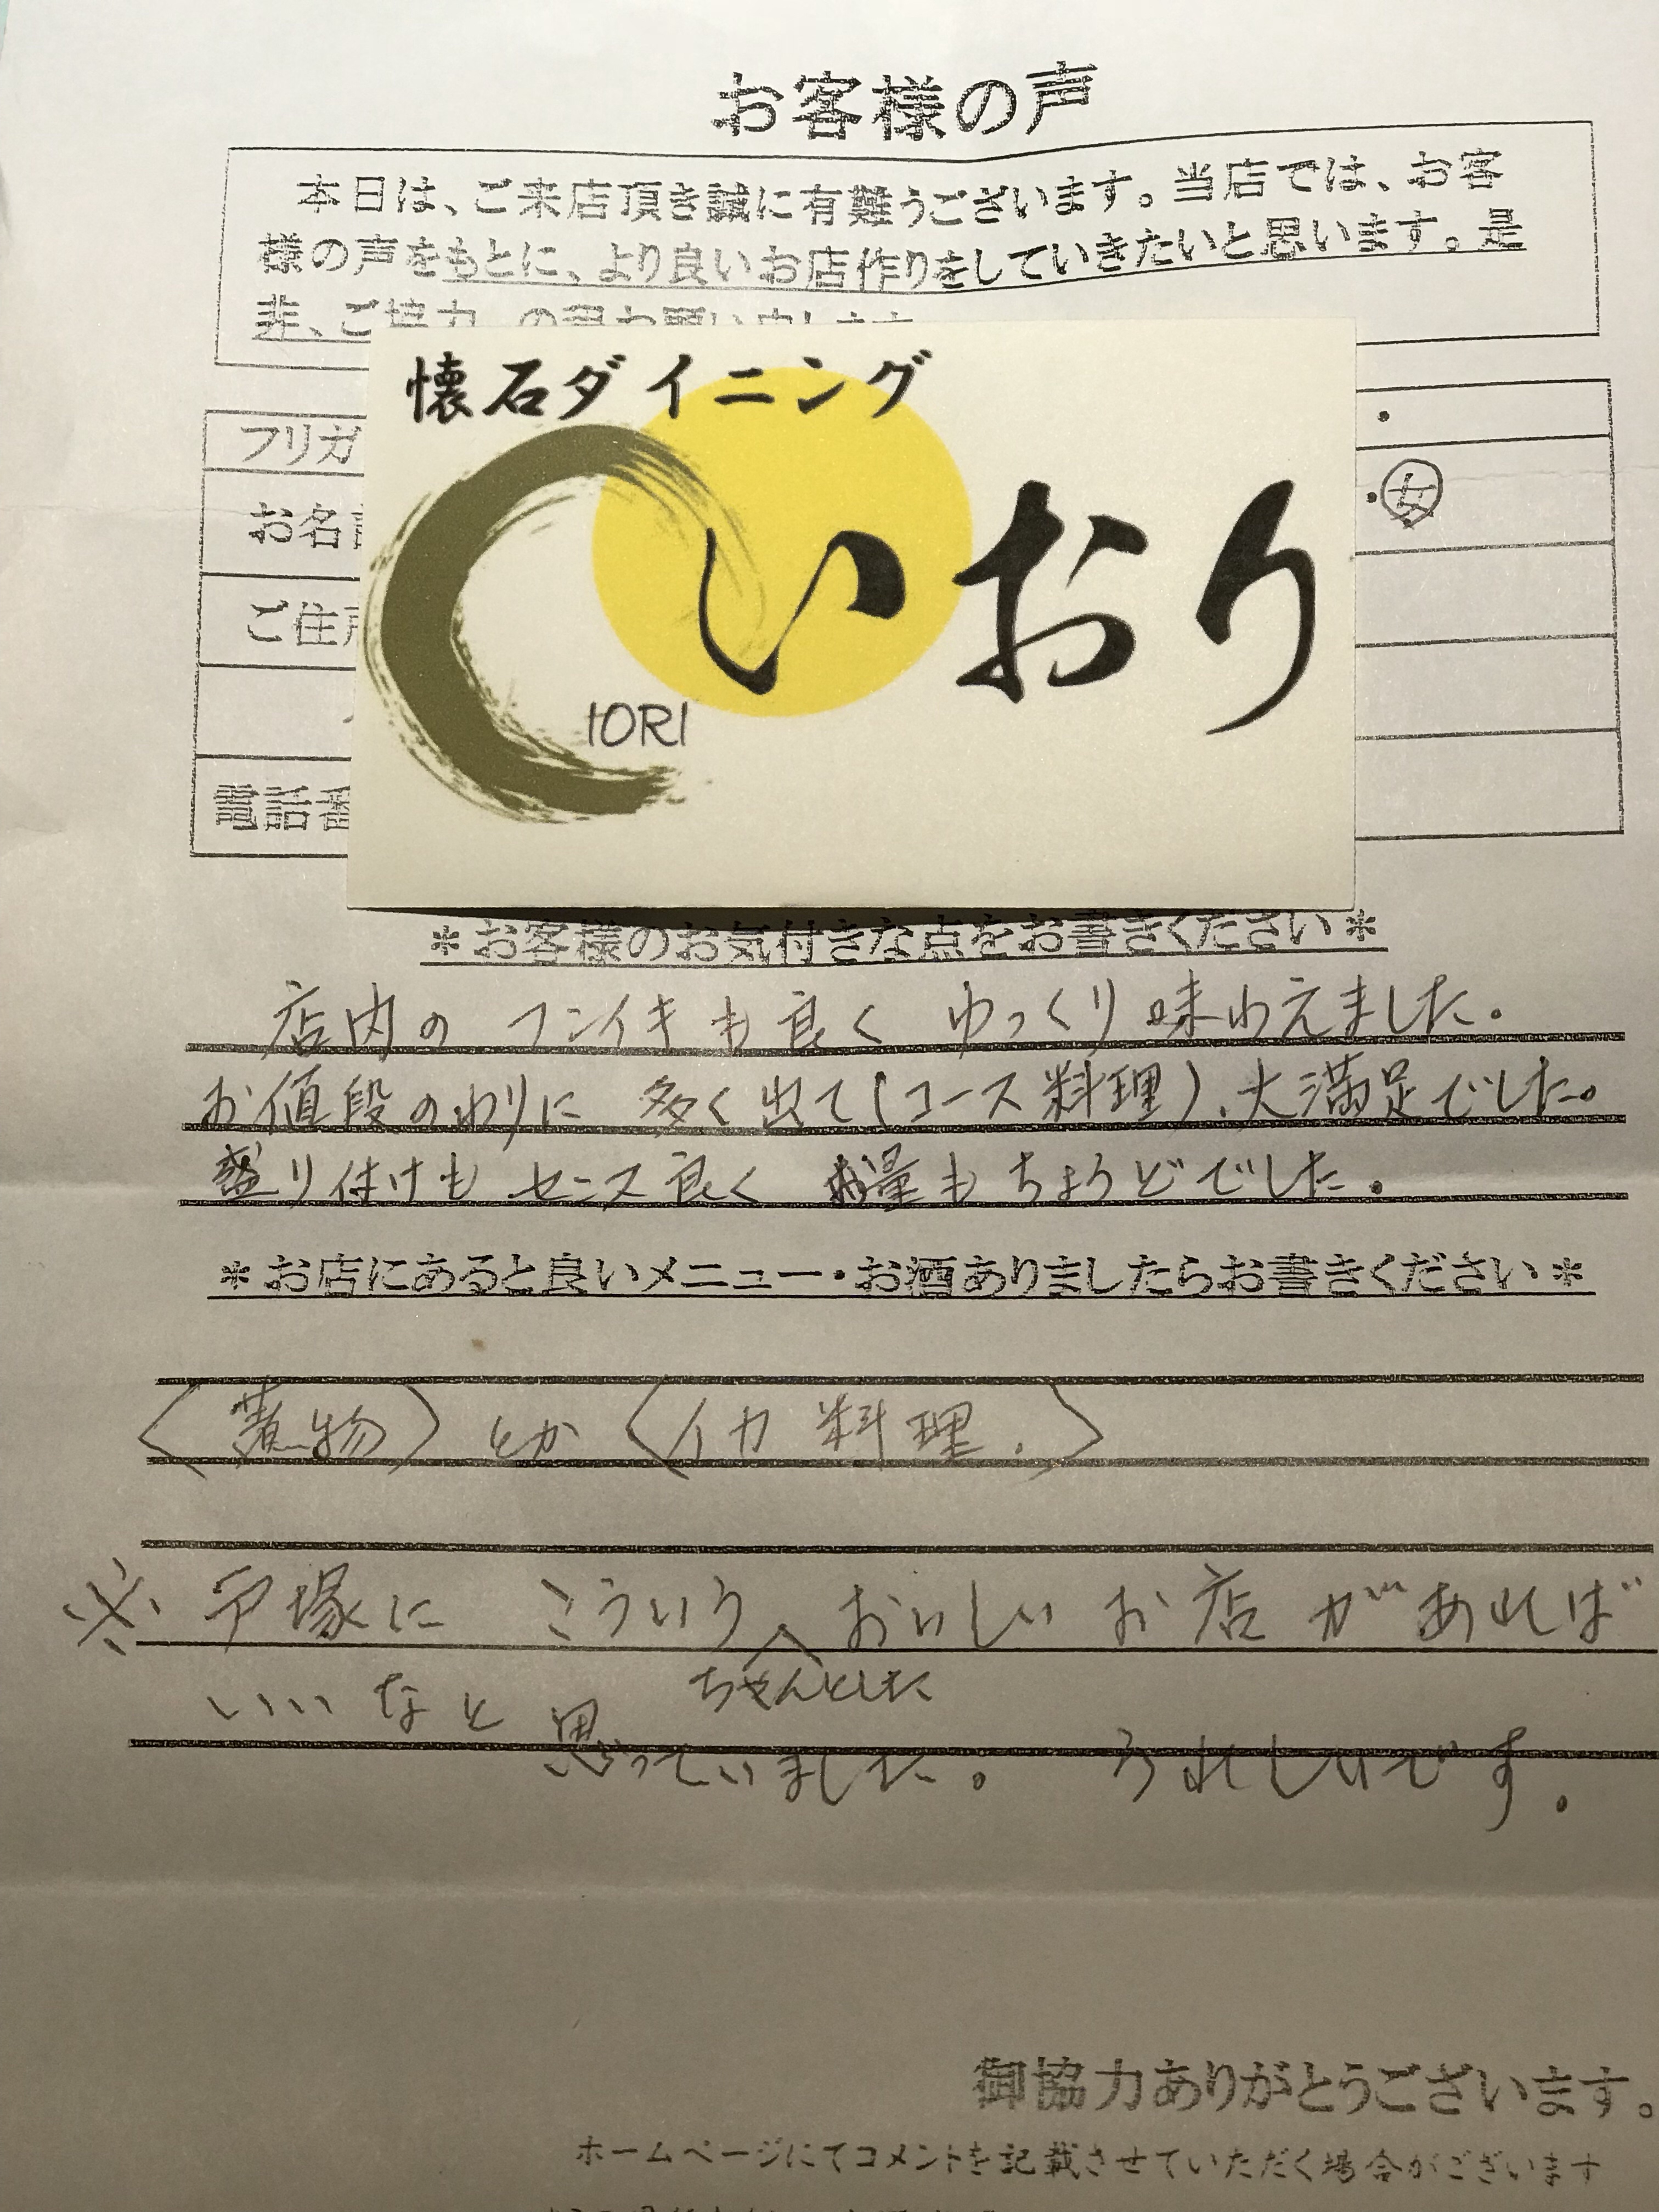 お客様の声
本日は、ご来店頂き誠に有難うございます。当店では、お客
様の声をもとに、より良いお店作りをしていきたいと思います。是
非、ご協力
懐石ダイニング
いおり
IORI
フリガ
お名
・女
ご住
電話番
＊お客様のお気付きな点をお書きください＊
店内の フンイキも良く ゆっくり味わえました。
お値段のわりに 多く出て(コース料理)、大満足でした。
盛り付けも センス良く 量もちょうどでした。
＊お店にあると良いメニュー・お酒ありましたらお書きください＊
〈煮物〉とか〈イカ料理.〉
※ 戸塚に こういう おいしい お店 があれば
ちゃんとした
いいなと 思っていました。 うれしいです。
御協力ありがとうございます。
ホームページにてコメントを記載させていただく場合がございます